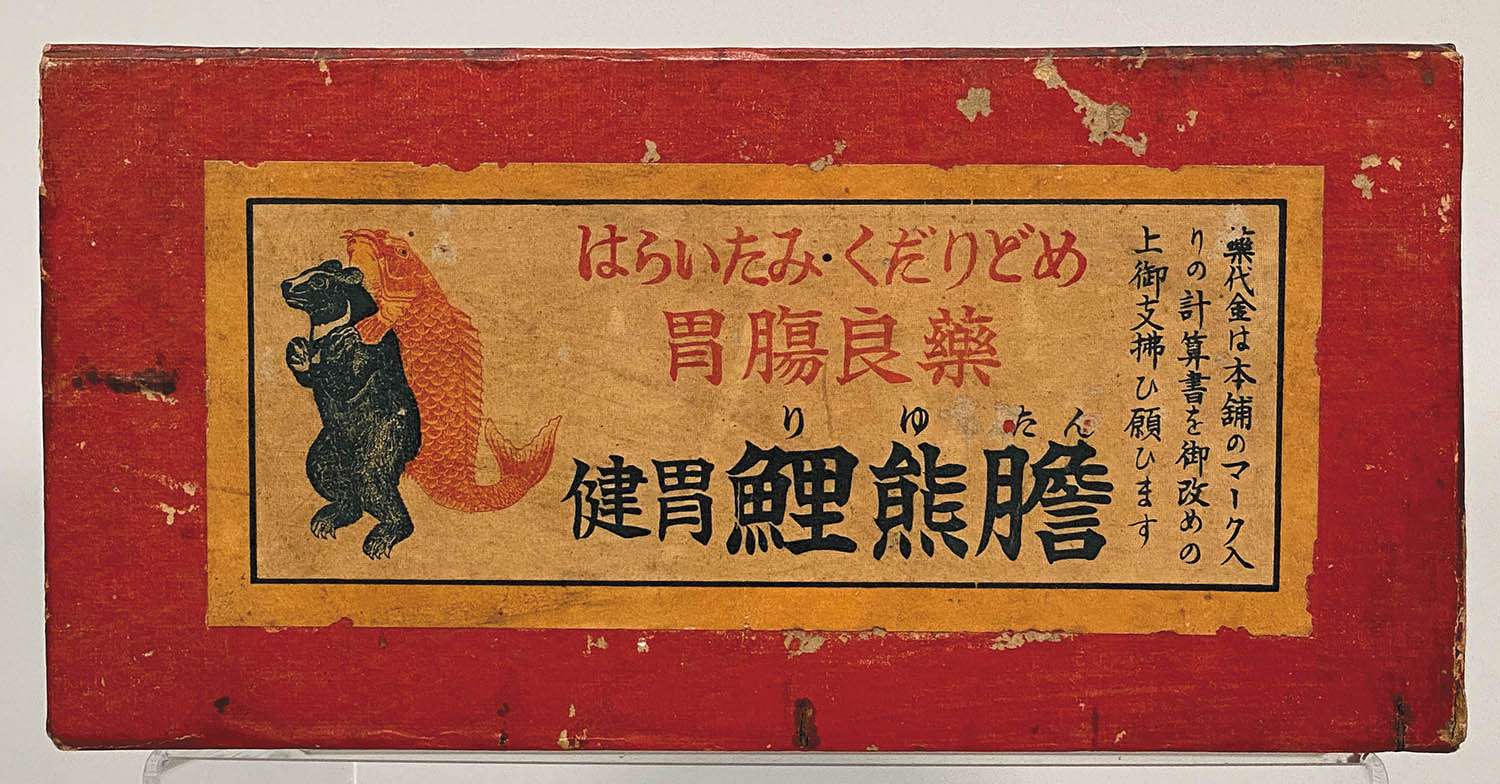 はらいたみ・くだりどめ
胃腸良藥
りゆたん
健胃鯉熊膽
藥代金は本舗のマーク入
りの計算書を御改めの
上御支拂ひ願ひます